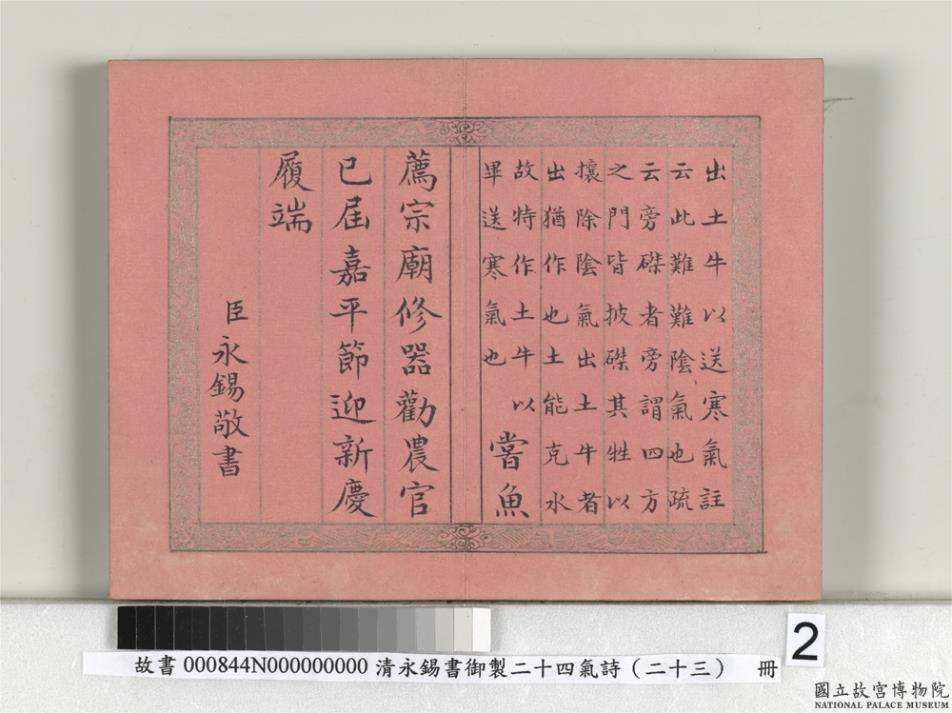 出土牛以送寒氣註
云此難難陰氣也疏
云旁磔者旁謂四方
之門皆披磔其牲以
攘除陰氣出土牛者
出猶作也土能克水
故特作土牛以
畢送寒氣也
嘗魚
薦宗廟修器勸農官
已届嘉平節迎新慶
履端
臣永錫敬書
2
故書 000844N000000000 清永錫書御製二十四氣詩(二十三) 冊
國立故宮博物院
NATIONAL PALACE MUSEUM